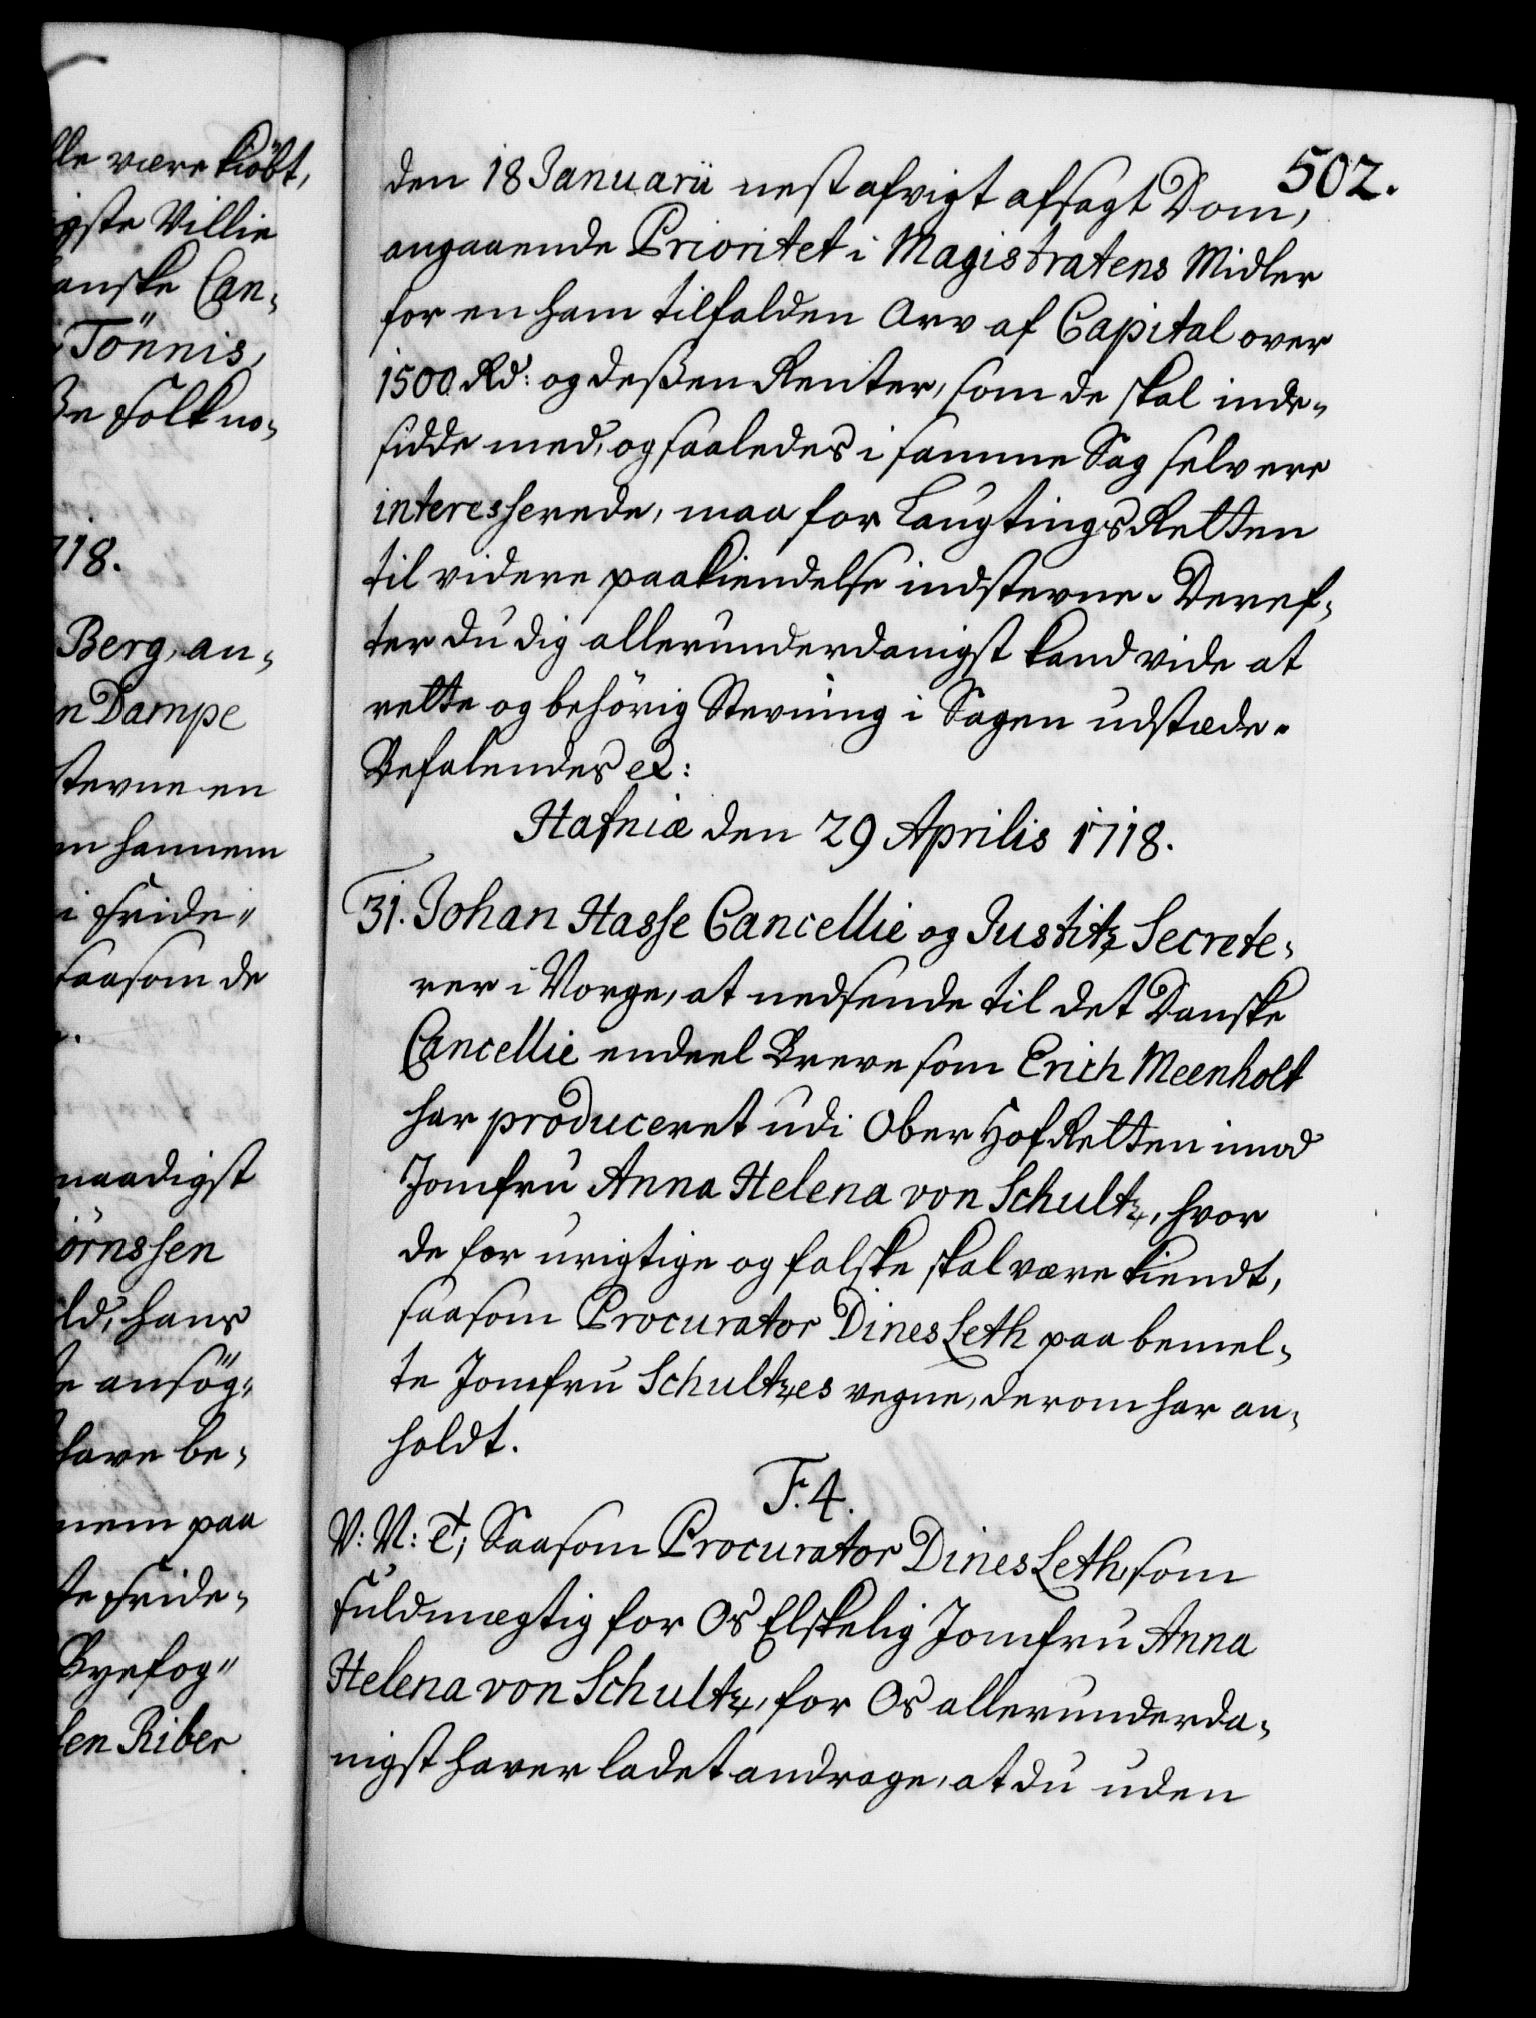 lle være kiöbt,
igste Villie
anske Can-
Tönnis,
ße folk no-
718.
Berg, an-
n Dampe
stevne en
m hannem
i Fride-
saasom de
naadigst
örnssen
ld, hans
e ansög-
have be-
nem paa
te Fride-
Byefog-
sen Riber
502.
den 18 Januarii nest afvigt afsagt Dom,
angaaende Prioritet i Magistratens Midler
for en ham tilfalden Arv af Capital over
1500 Rd: og deßen Renter, som de skal inde-
sidde med, og saaledes i samme Sag selv ere
interesserede, maa for Laugtings Retten
til videre paakiendelse indstevne. Deref-
ter du dig allerunderdanigst kand vide at
rette og behörig Stevning i Sagen udstæde.
Befalendes etc:
Hafniæ den 29 Aprilis 1718.
31. Johan Hasse Cancellie og Justitz Secrete-
rer i Norge, at nedsende til det Danske
Cancellie endeel Breve som Erich Meenholt
har produceret udi Ober Hof Retten imod
Jomfru Anna Helena von Schultz, hvor
de for urigtige og falske skal være kiendt,
saasom Procurator Dines Leth paa bemel-
te Jomfru Schultzes vegne, derom har an-
holdt.
F. 4.
V: N: et; Saasom Procurator Dines Leth, som
fuldmægtig for Os Elskelig Jomfru Anna
Helena von Schultz, for Os allerunderda-
nigst haver ladet andrage, at du uden